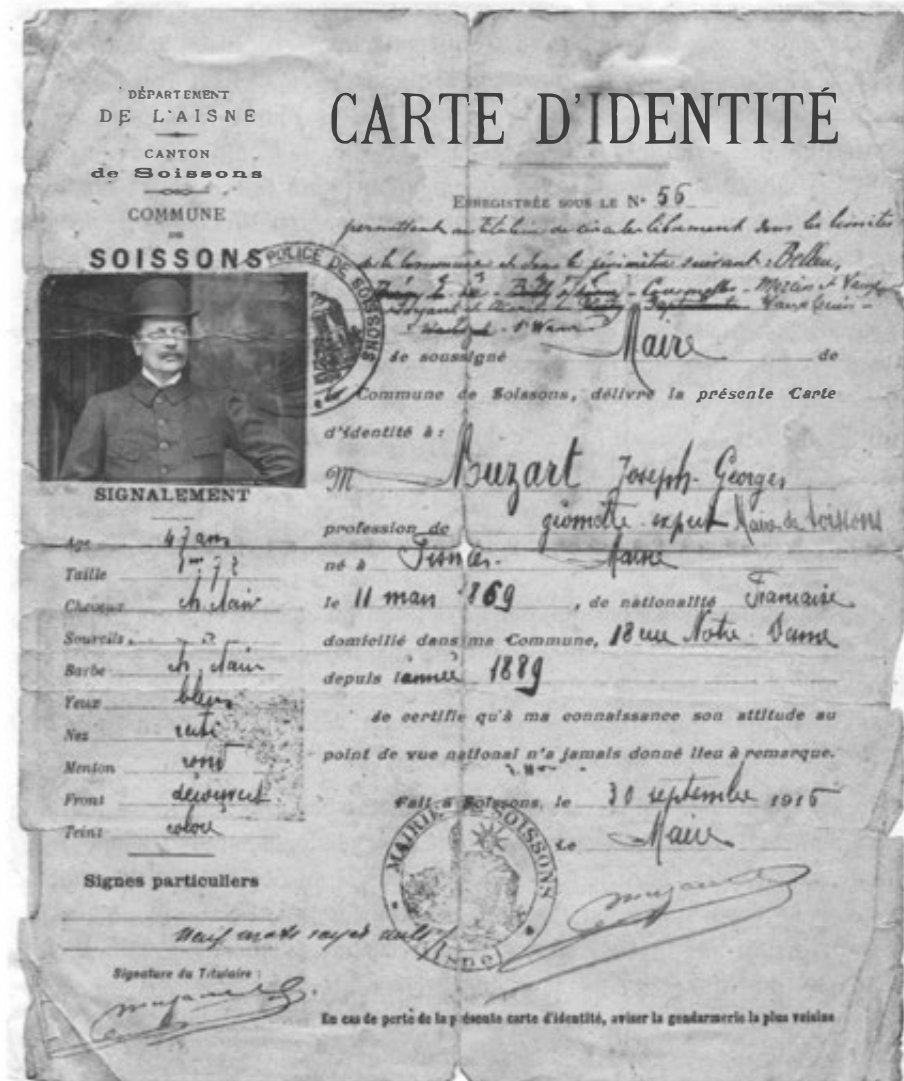 DÉPARTEMENT
DE L'AISNE
CANTON
de Soissons
COMMUNE
DE
SOISSONS
CARTE D'IDENTITÉ
ENREGISTRÉE SOUS LE N° 56
permettant au titulaire de circuler librement dans les limites
de la commune et dans le périmètre suivant : Belleu,
Courmelles - Mercin et Vaux
POLICE DE SOISSONS
Je soussigné Maire de
la Commune de Soissons, délivre la présente Carte
d'identité à :
M Muzart Joseph-Georges
profession de géomètre-expert Maire de Soissons
né à Fismes Marne
le 11 mars 1869, de nationalité Française
domicilié dans ma Commune, 18 rue Notre-Dame
depuis l'année 1889
Je certifie qu'à ma connaissance son attitude au
point de vue national n'a jamais donné lieu à remarque.
Fait à Soissons, le 30 septembre 1916
Le Maire
MAIRIE DE SOISSONS
(Aisne)
SIGNALEMENT
Age 47 ans
Taille
Cheveux ch. clair
Sourcils
Barbe ch. clair
Yeux bleus
Nez
Menton rond
Front découvert
Teint coloré
Signes particuliers
Neuf mots rayés nuls
Signature du Titulaire :
En cas de perte de la présente carte d'identité, aviser la gendarmerie la plus voisine